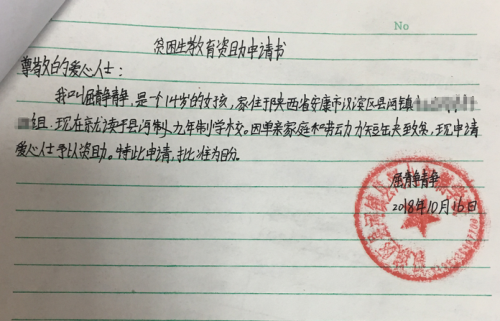 No
贫困生教育资助申请书
尊敬的爱心人士：
我叫屈静静，是一个14岁的女孩，家住于陕西省安康市汉滨区县河镇
组，现在就读于县河制九年制学校。因单亲家庭和劳动力短缺致贫，现申请
爱心人士予以资助。特此申请，批准为盼。
屈静静
2018年10月16日